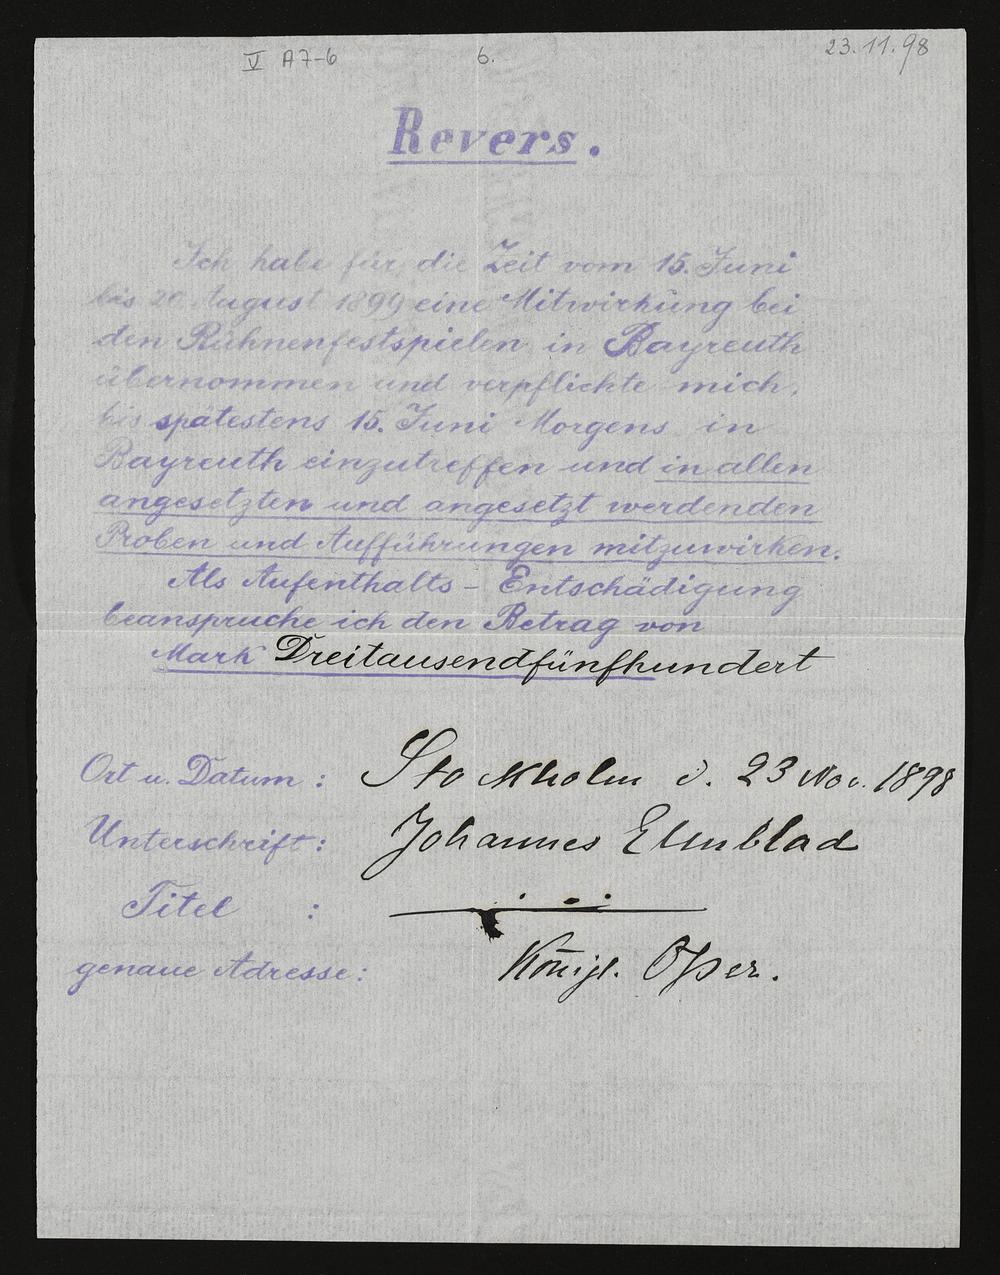 V A7-6 6. 23.11.98
Revers.
Ich habe für die Zeit vom 15. Juni
bis 20. August 1899 eine Mitwirkung bei
den Bühnenfestspielen in Bayreuth
übernommen und verpflichte mich,
bis spätestens 15. Juni Morgens in
Bayreuth einzutreffen und in allen
angesetzten und angesetzt werdenden
Proben und Aufführungen mitzuwirken.
Als Aufenthalts - Entschädigung
beanspruche ich den Betrag von
Mark Dreitausendfünfhundert
Ort u. Datum : Stockholm d. 23 Nov. 1898
Unterschrift : Johannes Elmblad
Titel :
genaue Adresse : Königl. Oper.